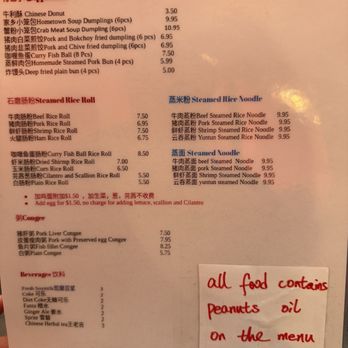 牛利酥 Chinese Donut 3.50
家乡小笼包Hometown Soup Dumplings (6pcs) 9.95
蟹粉小笼包Crab Meat Soup Dumpling (6pcs) 10.95
猪肉白菜煎饺Pork and Bokchoy fried dumpling (6 pcs) 6.95
猪肉韭菜煎饺Pork and Chive fried dumpling (6pcs) 6.95
咖喱鱼蛋Curry Fish Ball (8 Pcs) 7.50
蒸鲜肉包Homemade Steamed Pork Bun (4 pcs) 5.99
炸馒头Deep fried plain bun (4 pcs) 5.00
石磨肠粉Steamed Rice Roll
牛肉肠粉Beef Rice Roll 7.50
猪肉肠粉Pork Rice Roll 6.95
鲜虾肠粉Shrimp Rice Roll 7.50
火腿肠粉Ham Rice Roll 6.75
咖喱鱼蛋肠粉Curry Fish Ball Rice Roll 8.50
虾米肠粉Dried Shrimp Rice Roll 7.00
玉米肠粉Corn Rice Roll 6.50
芫茜葱肠粉Cilantro and Scallion Rice Roll 5.75
白肠粉Plain Rice Roll 5.50
加鸡蛋附加$1.50 ，加生菜，葱，芫茜不收费
Add egg for $1.50, no charge for adding lettuce, scallion and Cilantro
蒸米粉 Steamed Rice Noodle
牛肉蒸粉Beef Steamed Rice Noodle 9.95
猪肉蒸粉 Pork Steamed Rice Noodle 9.95
鲜虾蒸粉 Shrimp Steamed Rice Noodle 9.95
云吞蒸粉 Yuntun Steamed Rice Noodle 9.95
蒸面 Steamed Noodle
牛肉蒸面 beef Steamed Noodle 9.95
猪肉蒸面 Pork Steamed Noodle 9.95
鲜虾蒸面 Shrimp Steamed Noodle 9.95
云吞蒸面 yuntun steamed Noodle 9.95
粥Congee
猪肝粥 Pork Liver Congee 7.50
皮蛋瘦肉粥 Pork with Preserved egg Congee 7.95
鱼片粥Fish fillet Congee 8.25
白粥Plain Congee 5.75
Beverages 饮料
Fresh Soymilk 3
Coke 可乐 2
Diet Coke无糖可乐 2
Fanta 橙水 2
Ginger Ale 姜水 2
Sprite 雪碧 2
Chinese Herbal tea王老吉 3
all food contains
peanuts oil
on the menu